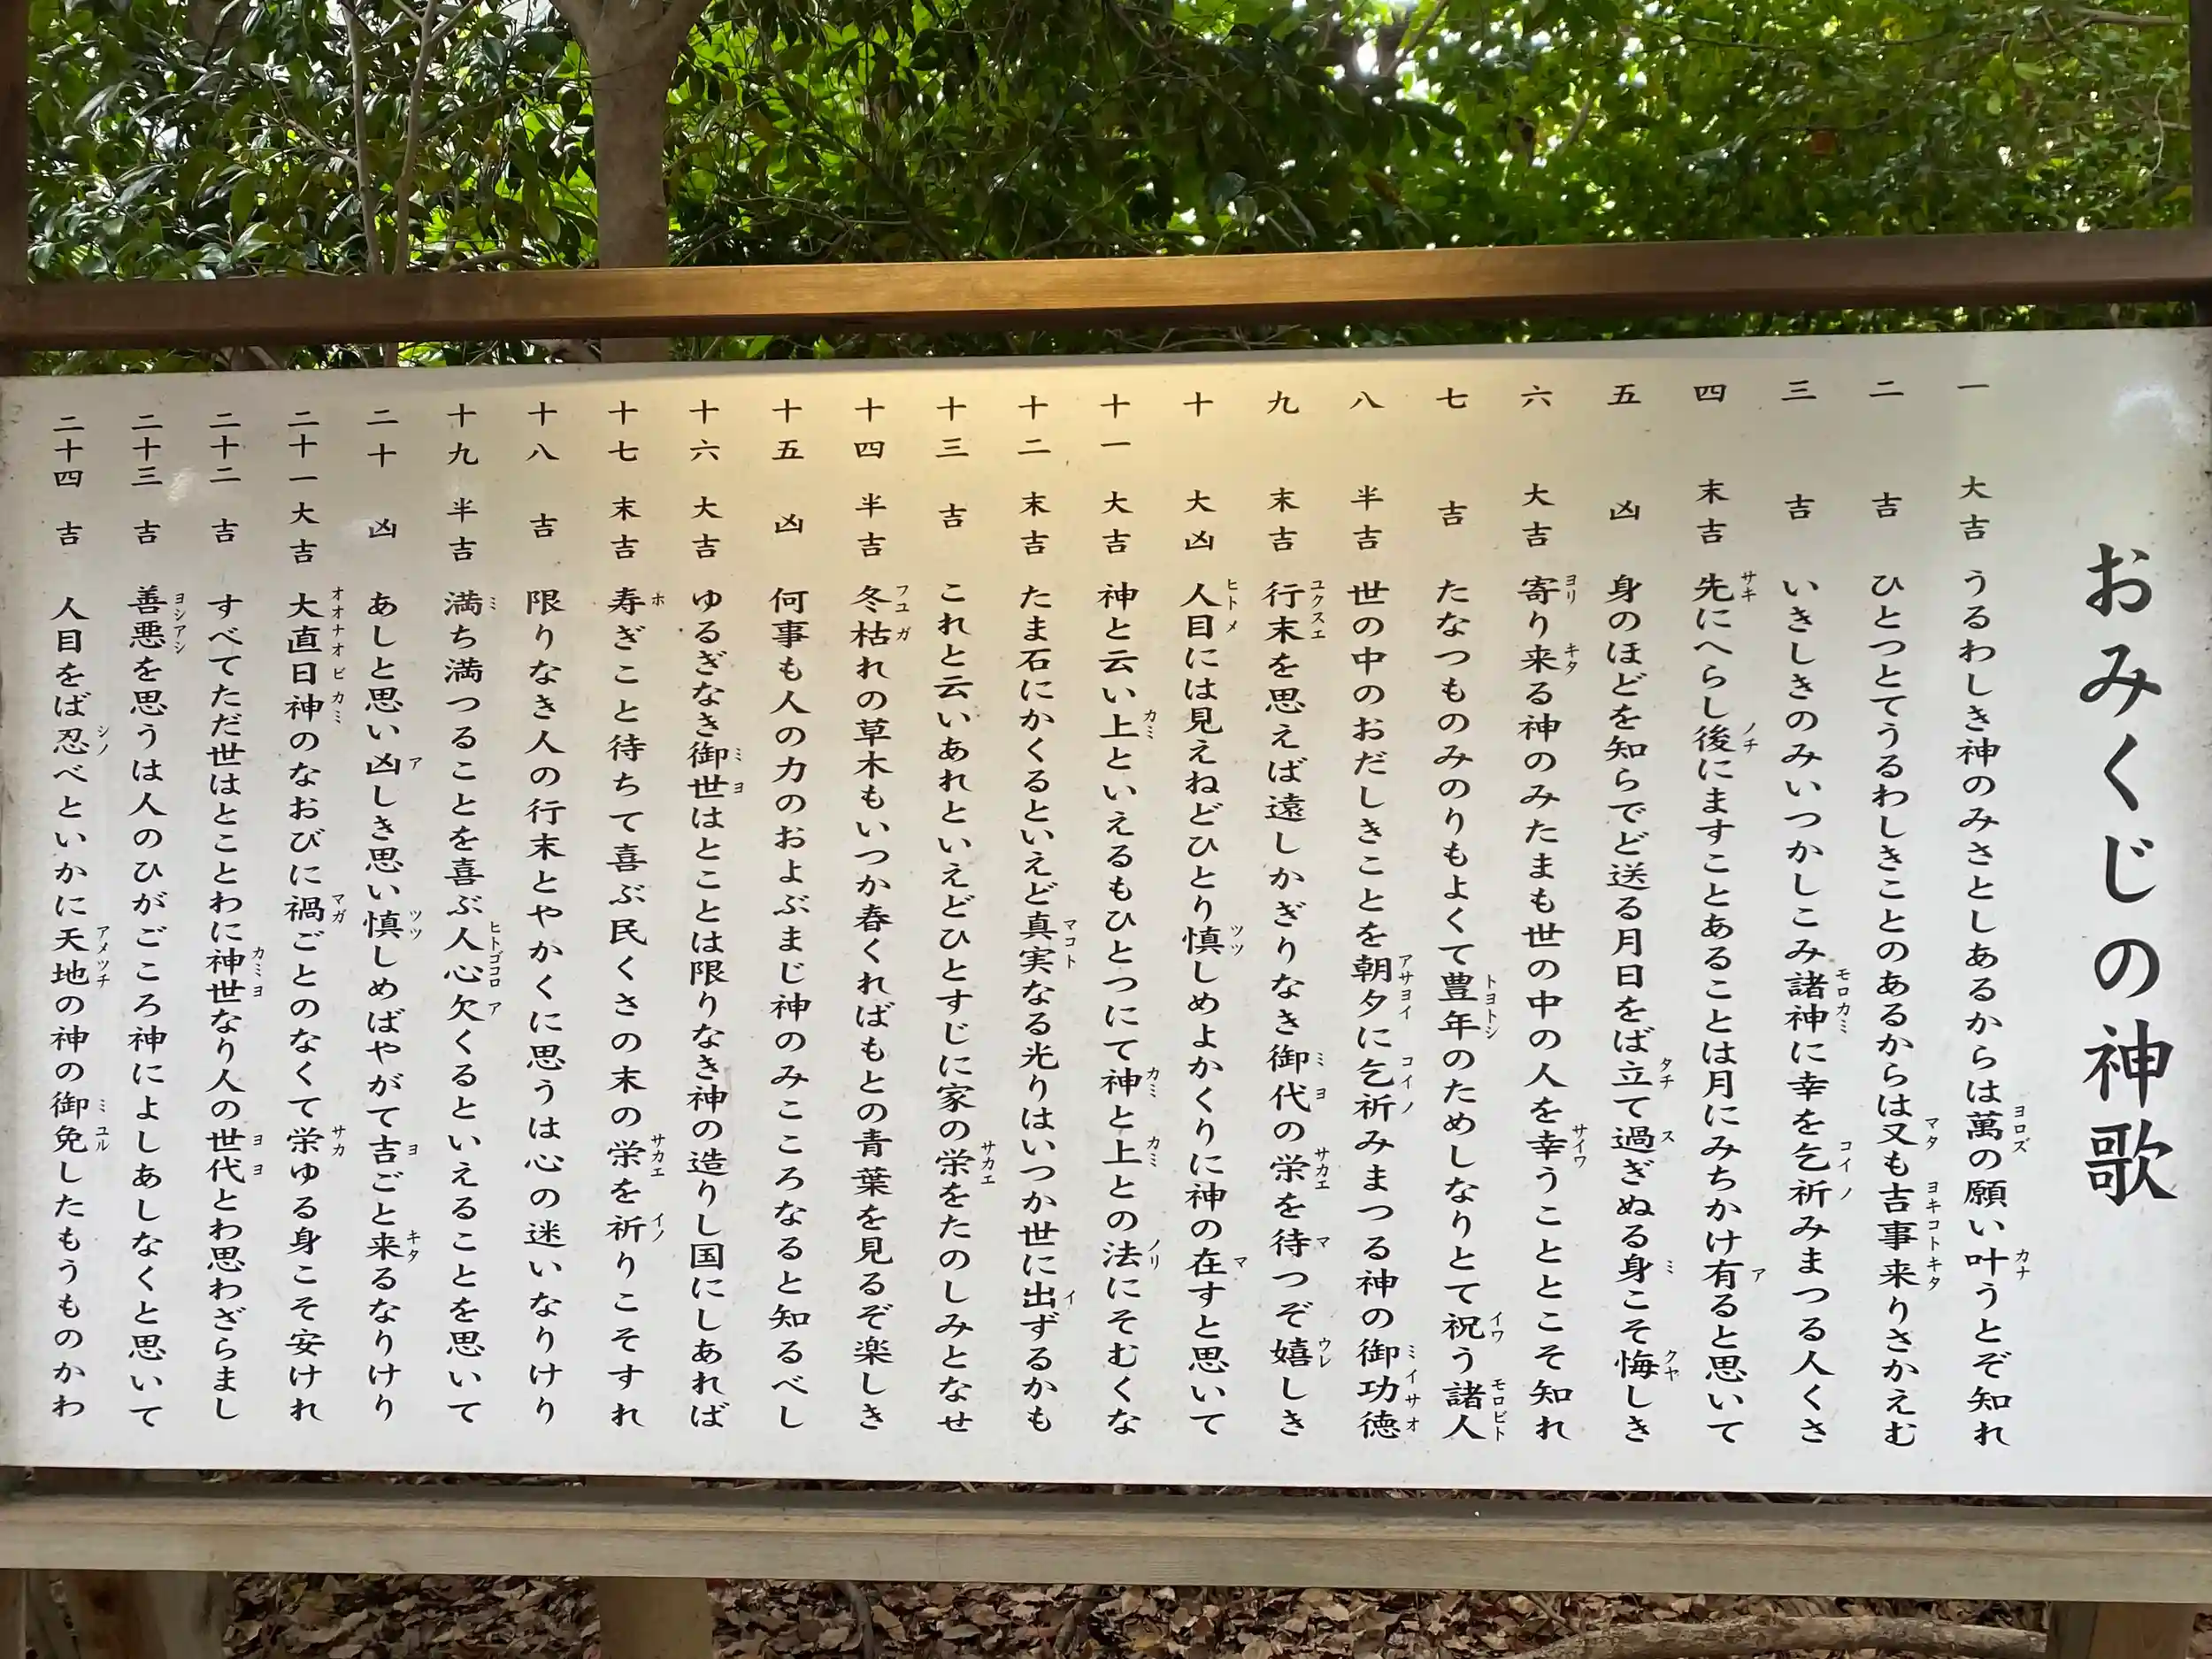 おみくじの神歌
一 大吉 うるわしき神のみさとしあるからは萬の願い叶うとぞ知れ
二 吉 ひとつとてうるわしきことのあるからは又も吉事来りさかえむ
三 吉 いきしきのみいつかしこみ諸神に幸を乞祈みまつる人くさ
四 末吉 先にへらし後にますことあることは月にみちかけ有ると思いて
五 凶 身のほどを知らでど送る月日をば立て過ぎぬる身こそ悔しき
六 大吉 寄り来る神のみたまも世の中の人を幸うこととこそ知れ
七 吉 たなつものみのりもよくて豊年のためしなりとて祝う諸人
八 半吉 世の中のおだしきことを朝夕に乞祈みまつる神の御功徳
九 末吉 行末を思えば遠しかぎりなき御代の栄を待つぞ嬉しき
十 大凶 人目には見えねどひとり慎しめよかくりに神の在すと思いて
十一 大吉 神と云い上といえるもひとつにて神と上との法にそむくな
十二 末吉 たま石にかくるといえど真実なる光りはいつか世に出ずるかも
十三 吉 これと云いあれといえどひとすじに家の栄をたのしみとなせ
十四 半吉 冬枯れの草木もいつか春くればもとの青葉を見るぞ楽しき
十五 凶 何事も人の力のおよぶまじ神のみこころなると知るべし
十六 大吉 ゆるぎなき御世はとことは限りなき神の造りし国にしあれば
十七 末吉 寿ぎこと待ちて喜ぶ民くさの末の栄を祈りこそすれ
十八 吉 限りなき人の行末とやかくに思うは心の迷いなりけり
十九 半吉 満ち満つることを喜ぶ人心欠くるといえることを思いて
二十 凶 あしと思い凶しき思い慎しめばやがて吉ごと来るなりけり
二十一 大吉 大直日神のなおびに禍ごとのなくて栄ゆる身こそ安けれ
二十二 吉 すべてただ世はとことわに神世なり人の世代とわ思わざらまし
二十三 吉 善悪を思うは人のひがごころ神によしあしなくと思いて
二十四 吉 人目をば忍べといかに天地の神の御免したもうものかわ